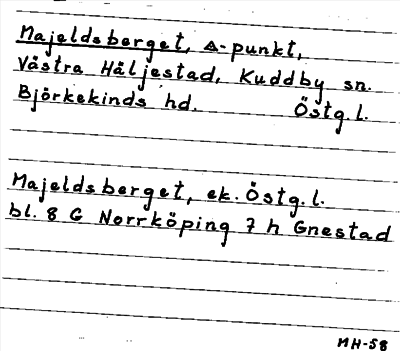 Majeldsberget, △-punkt,
Västra Häljestad, Kuddby sn.
Björkekinds hd. Östg.l.
Majeldsberget, ek. Östg.l.
bl. 8 G Norrköping 7 h Gnestad
MH-58